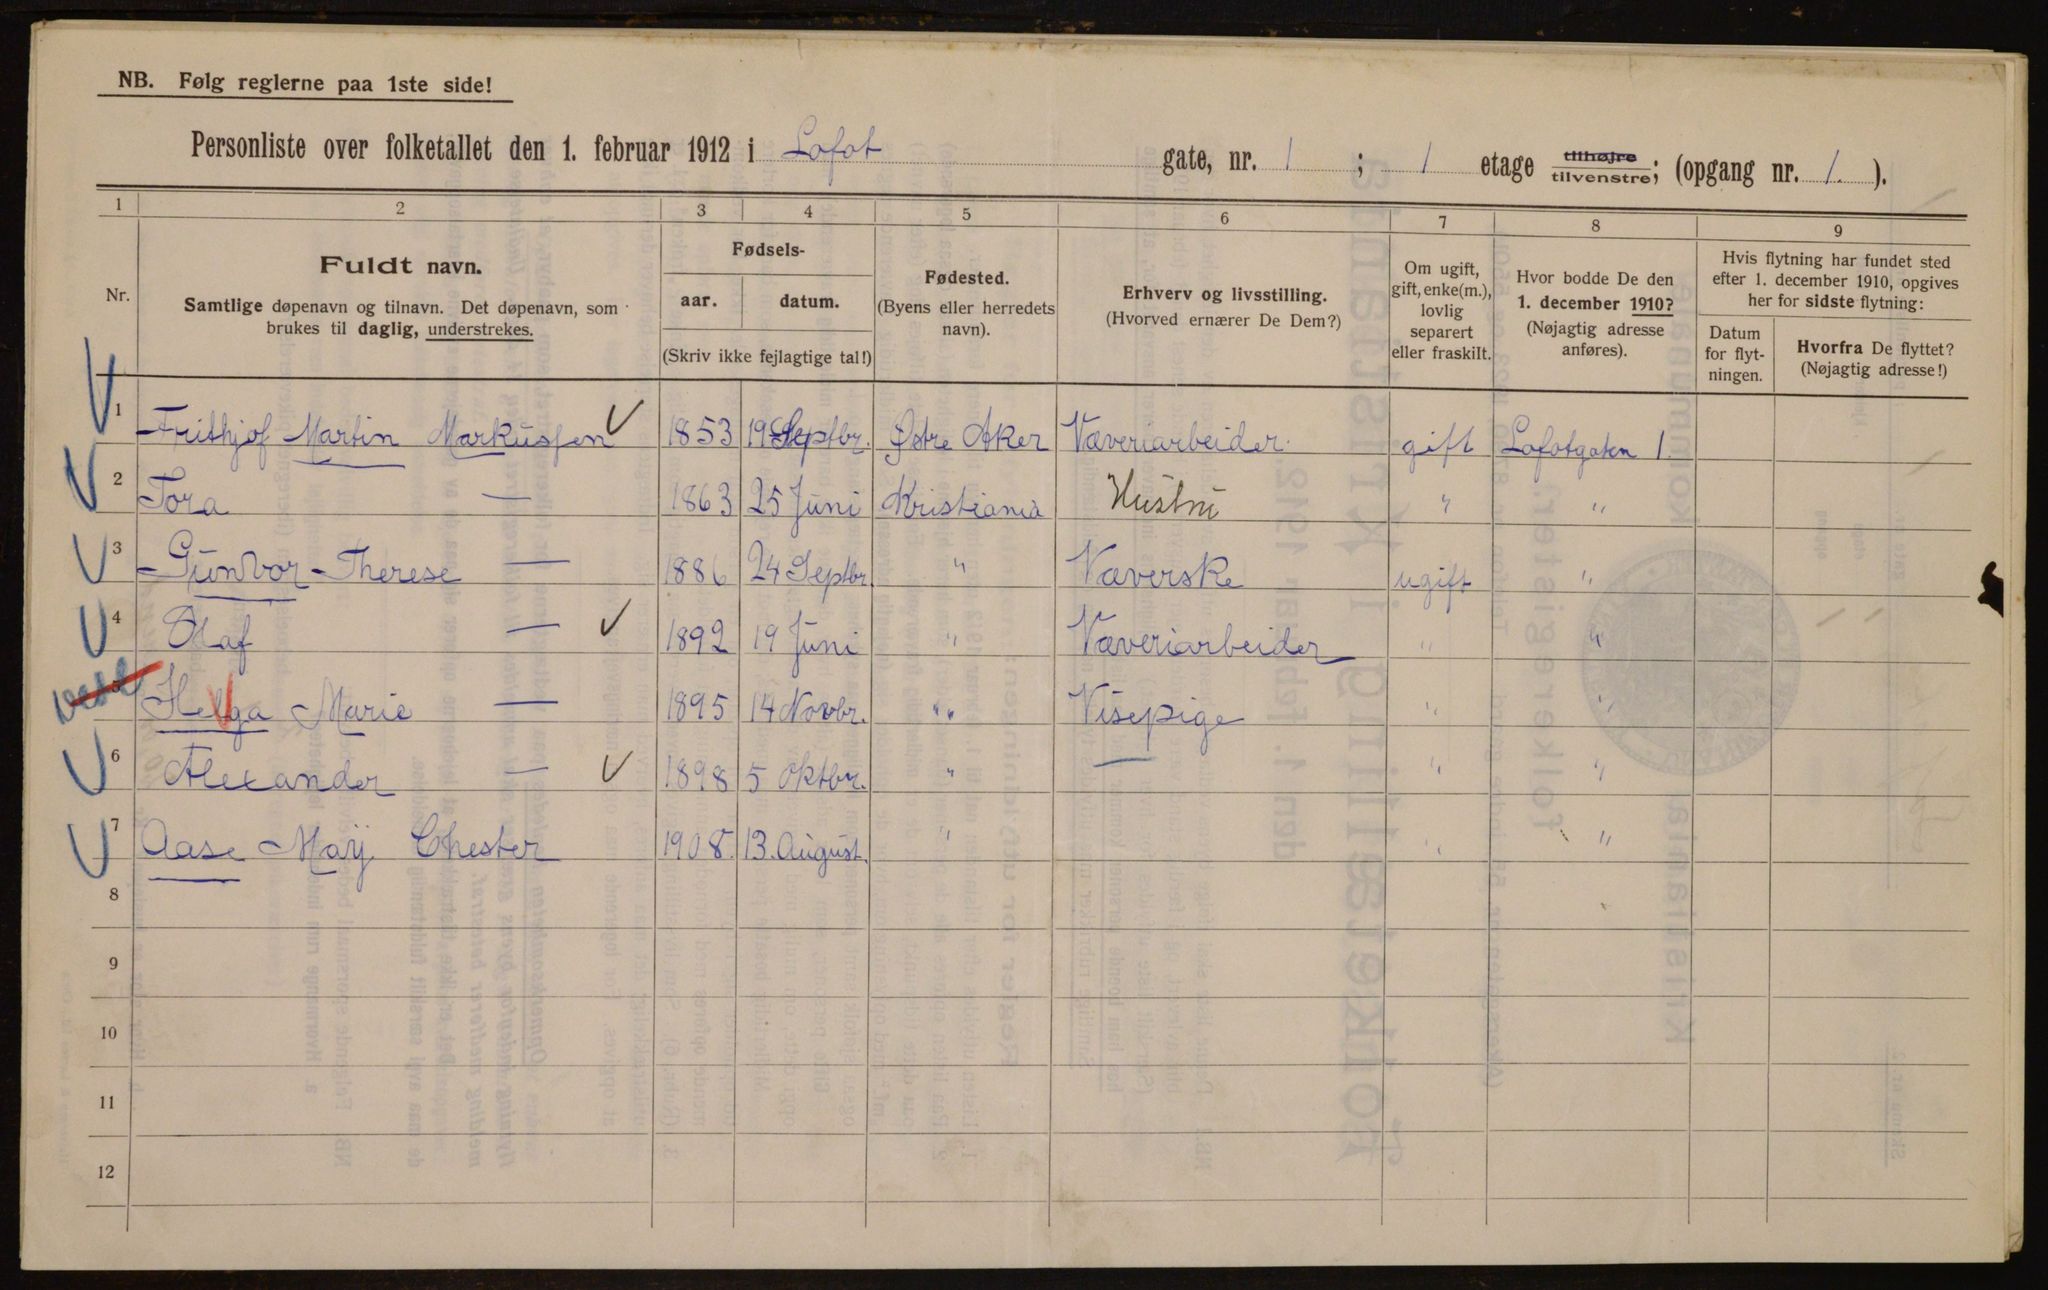 NB. Følg reglerne paa 1ste side!
Personliste over folketallet den 1. februar 1912 i Lofot gate, nr. 1 ; 1 etage tilhøjre tilvenstre; (opgang nr. 1. ).
1 2 3 4 5 6 7 8 9
Nr.
Fuldt navn.
Samtlige døpenavn og tilnavn. Det døpenavn, som
brukes til daglig, understrekes.
Fødsels-
aar. datum.
(Skriv ikke fejlagtige tal!)
Fødested.
(Byens eller herredets
navn).
Erhverv og livsstilling.
(Hvorved ernærer De Dem?)
Om ugift,
gift, enke(m.),
lovlig
separert
eller fraskilt.
Hvor bodde De den
1. december 1910?
(Nøjagtig adresse
anføres).
Hvis flytning har fundet sted
efter 1. december 1910, opgives
her for sidste flytning:
Datum
for flyt-
ningen.
Hvorfra De flyttet?
(Nøjagtig adresse!)
1 Frithjof Martin Markussen 1853 19 Septbr. Østre Aker Væveriarbeider. gift Lofotgaten 1.
2 Tora — 1863 25 Juni Kristiania Hustru " "
3 Gunvor Therese — 1886 24 Septbr. " Væverske ugift "
4 Olaf — 1892 19 Juni " Væveriarbeider " "
5 Helga Marie — 1895 14 Novbr. " Visepige " "
6 Alexander — 1898 5 Oktbr. " " "
7 Aase Marÿ Chester 1908. 13. August. " " "
8
9
10
11
12